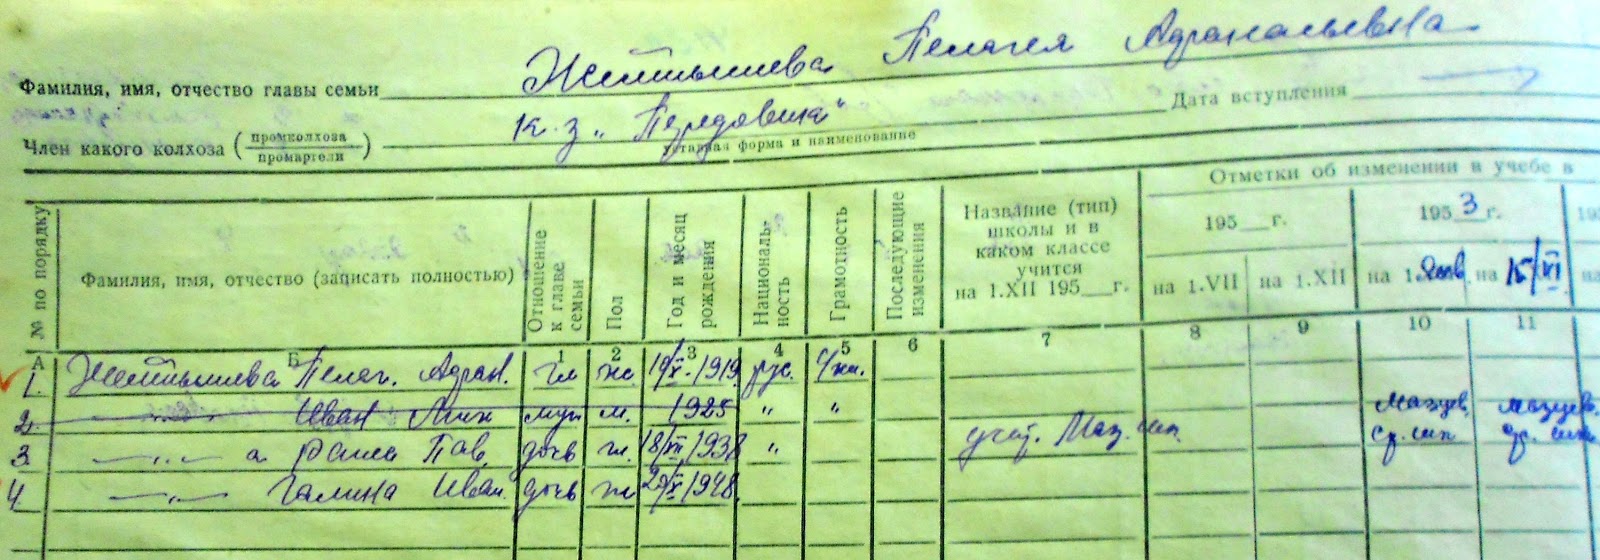 Фамилия, имя, отчество главы семьи Жетпышева Пелагея Адрианальевна
Член какого колхоза (промколхоза / промартели) к-з „Передовик“ Дата вступления
уставная форма и наименование
№ по порядку
Фамилия, имя, отчество (записать полностью)
Отношение к главе семьи
Пол
Год и месяц рождения
Националь-ность
Грамотность
Последующие изменения
Название (тип)
школы и в
каком классе
учится
на 1.XII 195__г.
Отметки об изменении в учебе в
195__г.
1953г.
на 1.VII
на 1.XII
на 1.Янв
на 15/VI
А Б 1 2 3 4 5 6 7 8 9 10 11
1. Пелаг. Адриан. гл ж. 1919 рус.
2. —„— Иван муж м. 1925 „ „
3. —„— а Раиса Пав. дочь 1938 „ Маз. шк. ср. шк
4. —„— Галина Иван. дочь 1948